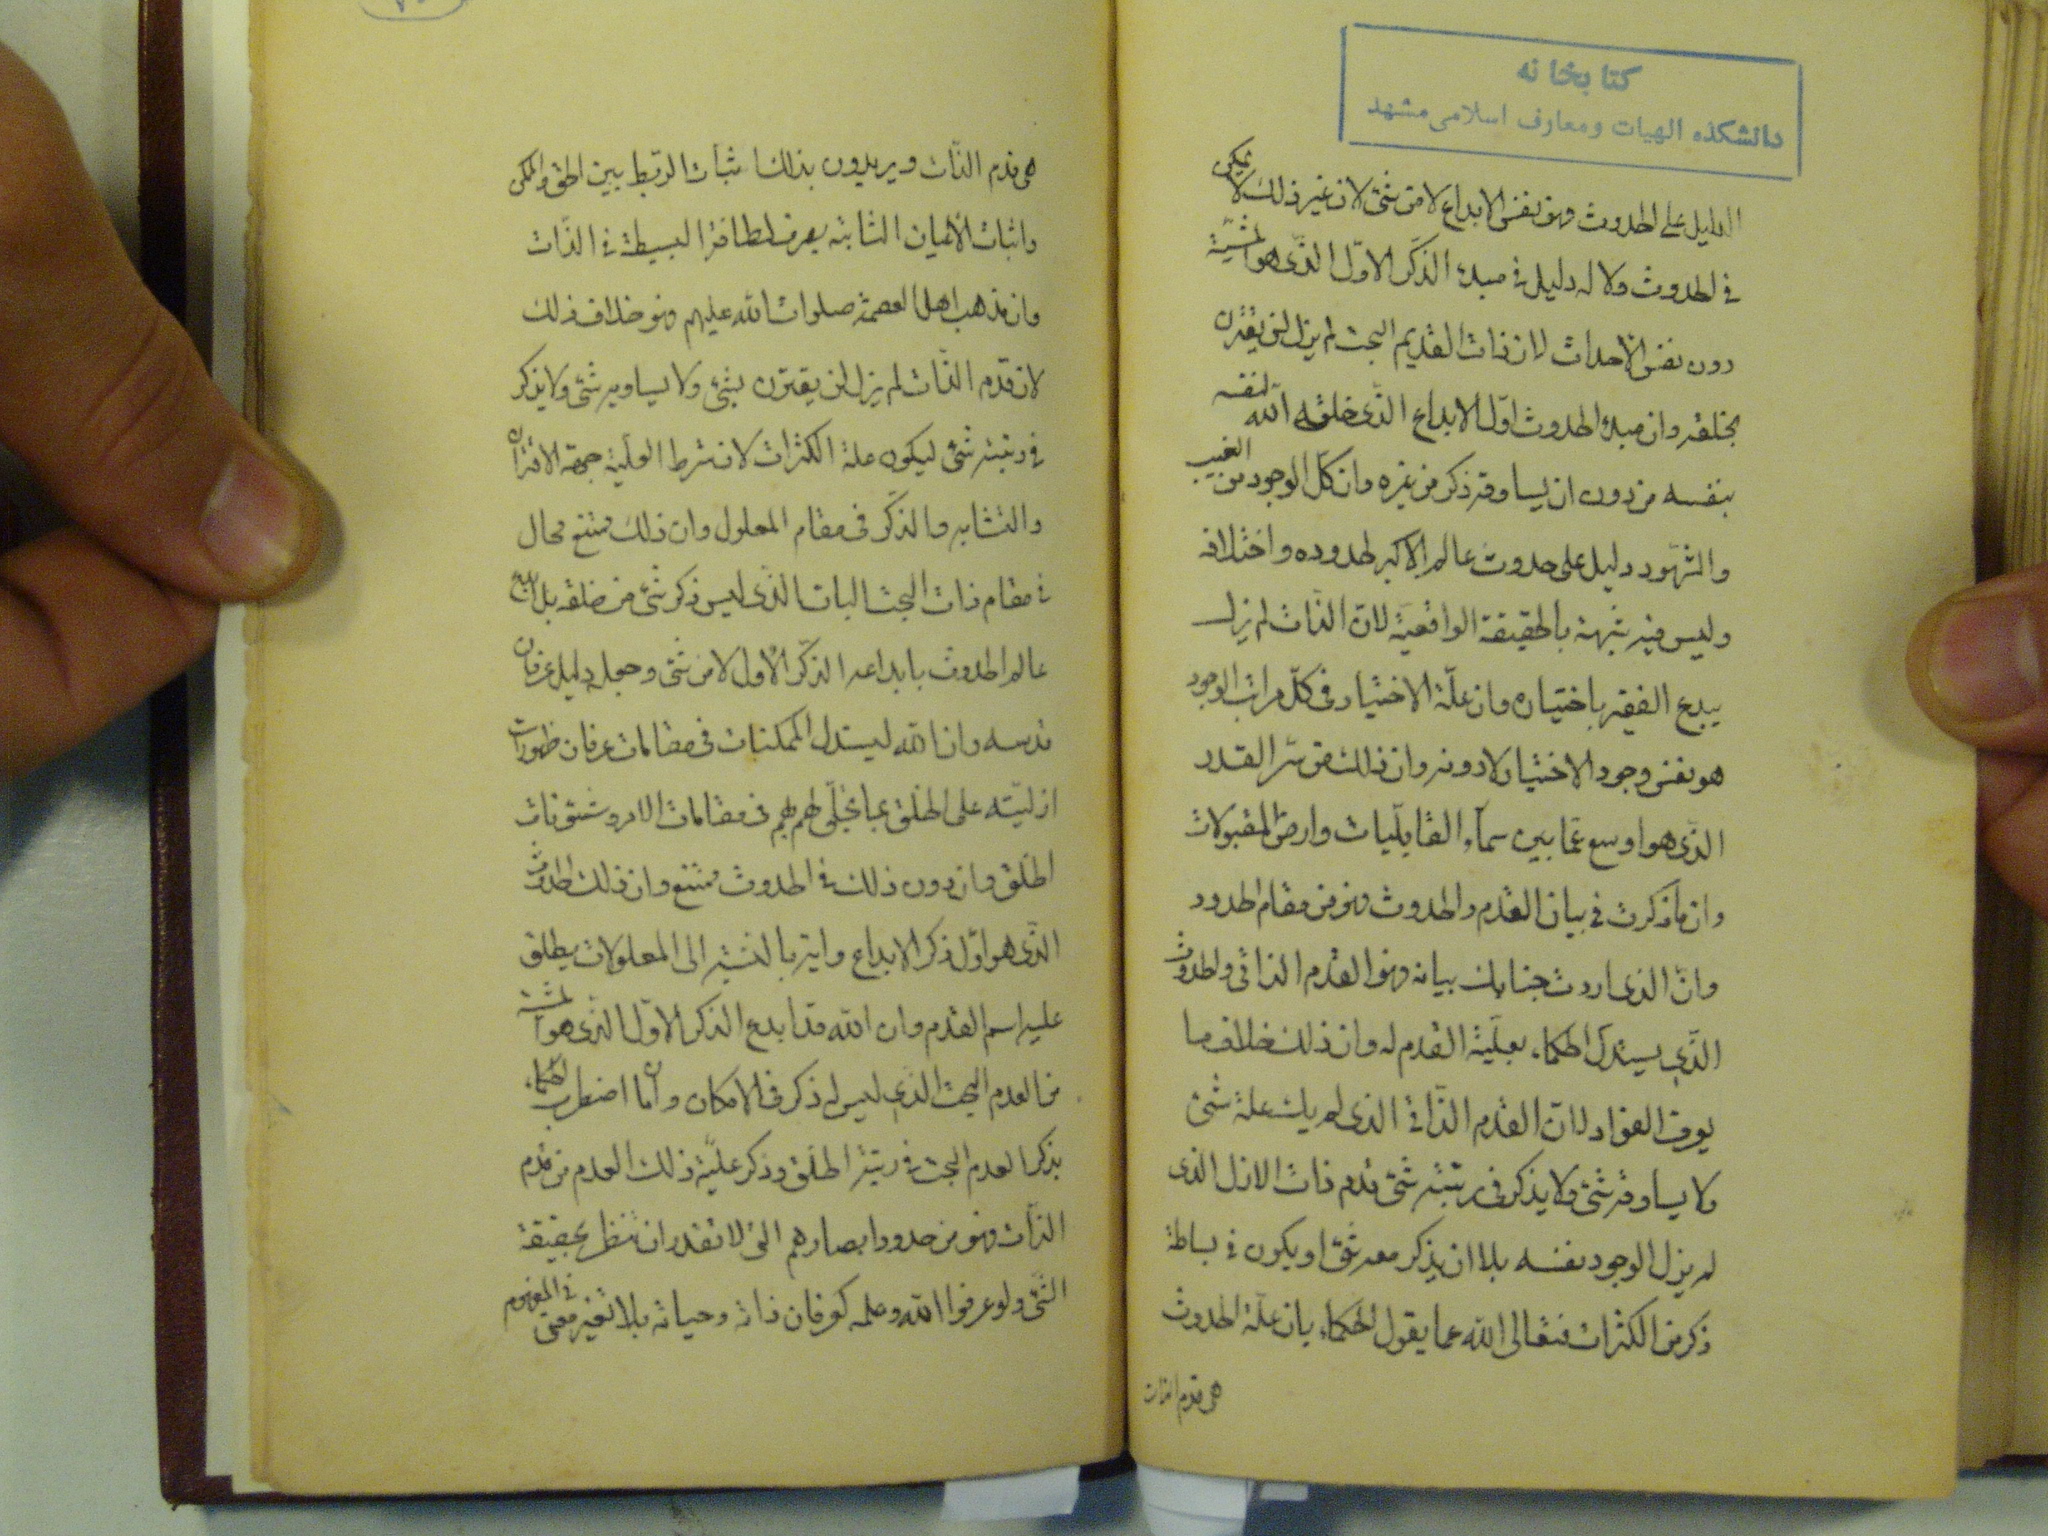 كتابخانه
دانشكده الهیات ومعارف اسلامی مشهد
الدليل على الحدوث وهو نفس الابداع لا من شئ لان غير ذلك لا يمكن
في الحدوث ولا له دليل في مبدء الذكر الاول الذى هو المشية
دون نفس الاحداث لان ذات القديم البحت لم يزل لن يقترن
بخلقه وان مبدء الحدوث اول الابداع الذى خلقه الله لنفسه
بنفسه من دون ان يساوقه ذكر من غيره وان كل الوجود من الغيب
والشهود دليل على حدوث عالم الاكبر لحدوده واختلافه
وليس فيه شبهة بالحقيقة الواقعية لان الذات لم يزل
يبدع باختياره وان علة الاختيار في كل مراتب الوجود
هو نفس وجود الاختيار لا دونه وان ذلك من سر القدر
الذى هو اوسع عما بين سماء القابليات وارض المقبولات
وان ما ذكرت في بيان القدم والحدوث فهو من مقام الحدود
وان الذى اردت جنابك بيانه فهو القدم الذاتى والحدوث
الذى يستدل الحكماء بعلية القدم له وان ذلك خلاف ما
يعرف الفؤاد لان القدم الذاتى الذى لم يك علة شئ
ولا يساوقه شئ ولا يذكر فى رتبته شئ قدم ذات الازل الذى
لم يزل الوجود نفسه بلا ان يذكر معه شئ او يكون في بساطة
ذكر من الكثرات فتعالى الله عما يقول الحكماء بان علة الحدوث
هى قدم الذات
هى قدم الذات ويريدون بذلك اثبات الربط بين الحق والممكن
واثبات الاعيان الثابتة بصرف لطافة البسيطة في الذات
وان مذهب اهل العصمة صلوات الله عليهم فهو خلاف ذلك
لان قدم الذات لم يزل لن يقترن بشئ ولا يساويه شئ ولا يذكر
في رتبته شئ ليكون علة الكثرات لان شرط العلية جهة الاقتران
والتشابه والذكر فى مقام المعلول وان ذلك ممتنع محال
في مقام ذات البحت البات الذى ليس ذكر شئ من خلقه بل ابدع
عالم الحدوث بابداعه الذكر الاول لا من شئ وجعله دليل عرفان
قدسه وان الله ليستدل الممكنات فى مقامات عرفان ظهورات
ازليته على الخلق بما تجلى لهم بهم فى مقامات الامر وشئونات
الخلق وان دون ذلك في الحدوث ممتنع وان ذلك الحدوث
الذى هو اول ذكر الابداع وايته بالنسبة الى المعلولات يطلق
عليه اسم القدم وان الله قد ابدع الذكر الاول الذى هو المشية
من العدم البحت الذى ليس له ذكر فى الامكان وان ما اضطرب الحكماء
بذكر العدم البحت في رتبة الخلق وذكر علية ذلك العدم من قدم
الذات فهو من حدود ابصارهم التى لا تقدر ان تنظر بحقيقة
الشئ ولو عرفوا الله وعلمه كعرفان ذاته وحياته بلا تغير معنى في المفهوم